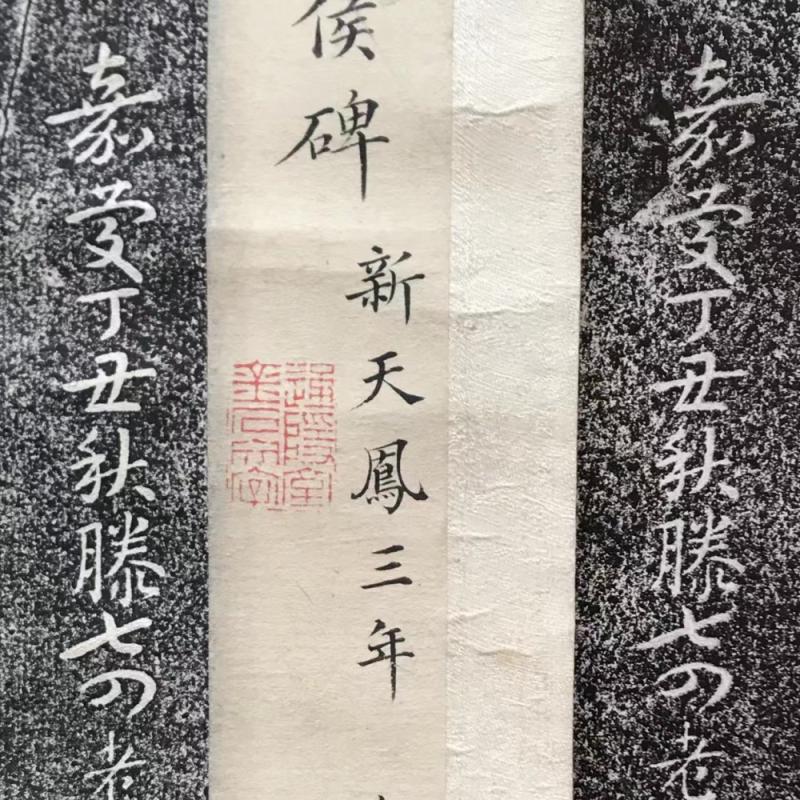 嘉慶丁丑秋滕七四老
侯碑
新天鳳三年
嘉慶丁丑秋滕七四老